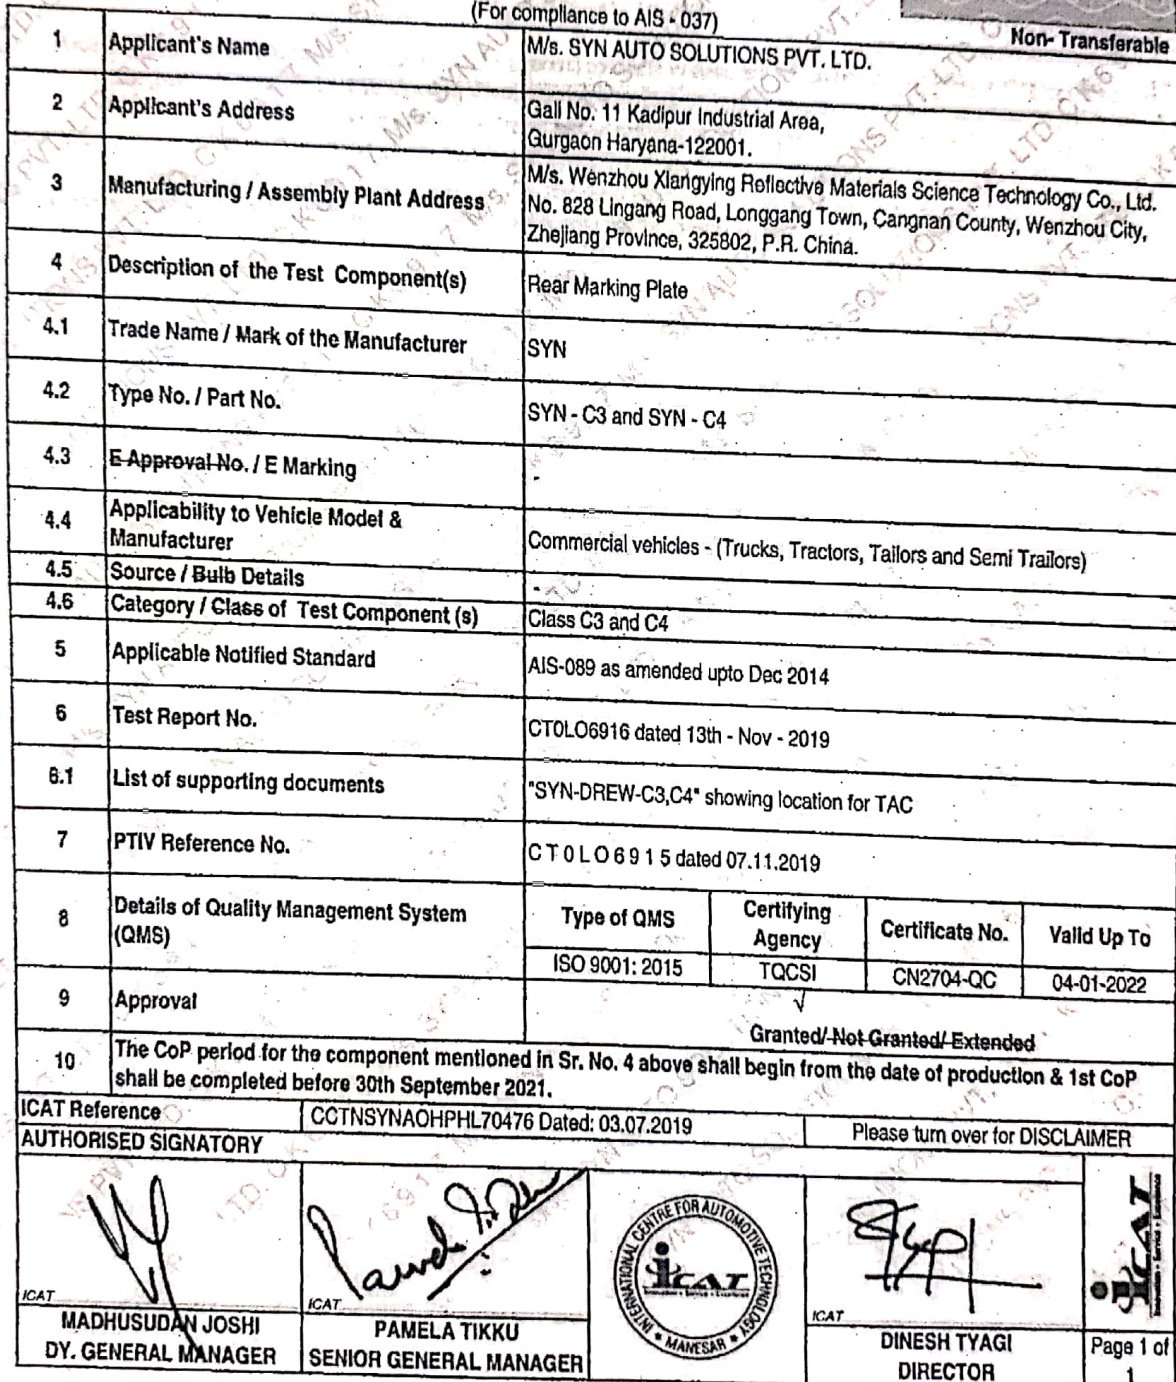 (For compliance to AIS - 037)
Non- Transferable
1 Applicant's Name M/s. SYN AUTO SOLUTIONS PVT. LTD.
2 Applicant's Address Gali No. 11 Kadipur Industrial Area,
Gurgaon Haryana-122001.
3 Manufacturing / Assembly Plant Address M/s. Wenzhou Xiangying Reflective Materials Science Technology Co., Ltd.
No. 828 Lingang Road, Longgang Town, Cangnan County, Wenzhou City,
Zhejiang Province, 325802, P.R. China.
4 Description of the Test Component(s) Rear Marking Plate
4.1 Trade Name / Mark of the Manufacturer SYN
4.2 Type No. / Part No. SYN - C3 and SYN - C4
4.3 E Approval No. / E Marking -
4.4 Applicability to Vehicle Model &
Manufacturer Commercial vehicles - (Trucks, Tractors, Tailors and Semi Trailors)
4.5 Source / Bulb Details -
4.6 Category / Class of Test Component (s) Class C3 and C4
5 Applicable Notified Standard AIS-089 as amended upto Dec 2014
6 Test Report No. CT0LO6916 dated 13th - Nov - 2019
6.1 List of supporting documents "SYN-DREW-C3,C4" showing location for TAC
7 PTIV Reference No. C T 0 L O 6 9 1 5 dated 07.11.2019
8 Details of Quality Management System
(QMS)
Type of QMS Certifying
Agency Certificate No. Valid Up To
ISO 9001: 2015 TQCSI CN2704-QC 04-01-2022
9 Approval √
Granted/ Not Granted/ Extended
10 The CoP period for the component mentioned in Sr. No. 4 above shall begin from the date of production & 1st CoP
shall be completed before 30th September 2021.
ICAT Reference CCTNSYNAOHPHL70476 Dated: 03.07.2019 Please turn over for DISCLAIMER
AUTHORISED SIGNATORY
ICAT
MADHUSUDAN JOSHI
DY. GENERAL MANAGER
ICAT
PAMELA TIKKU
SENIOR GENERAL MANAGER
INTERNATIONAL CENTRE FOR AUTOMOTIVE TECHNOLOGY
iCAT
Innovation - Service - Excellence
MANESAR
ICAT
DINESH TYAGI
DIRECTOR
iCAT
Innovation - Service - Excellence
Page 1 of
1